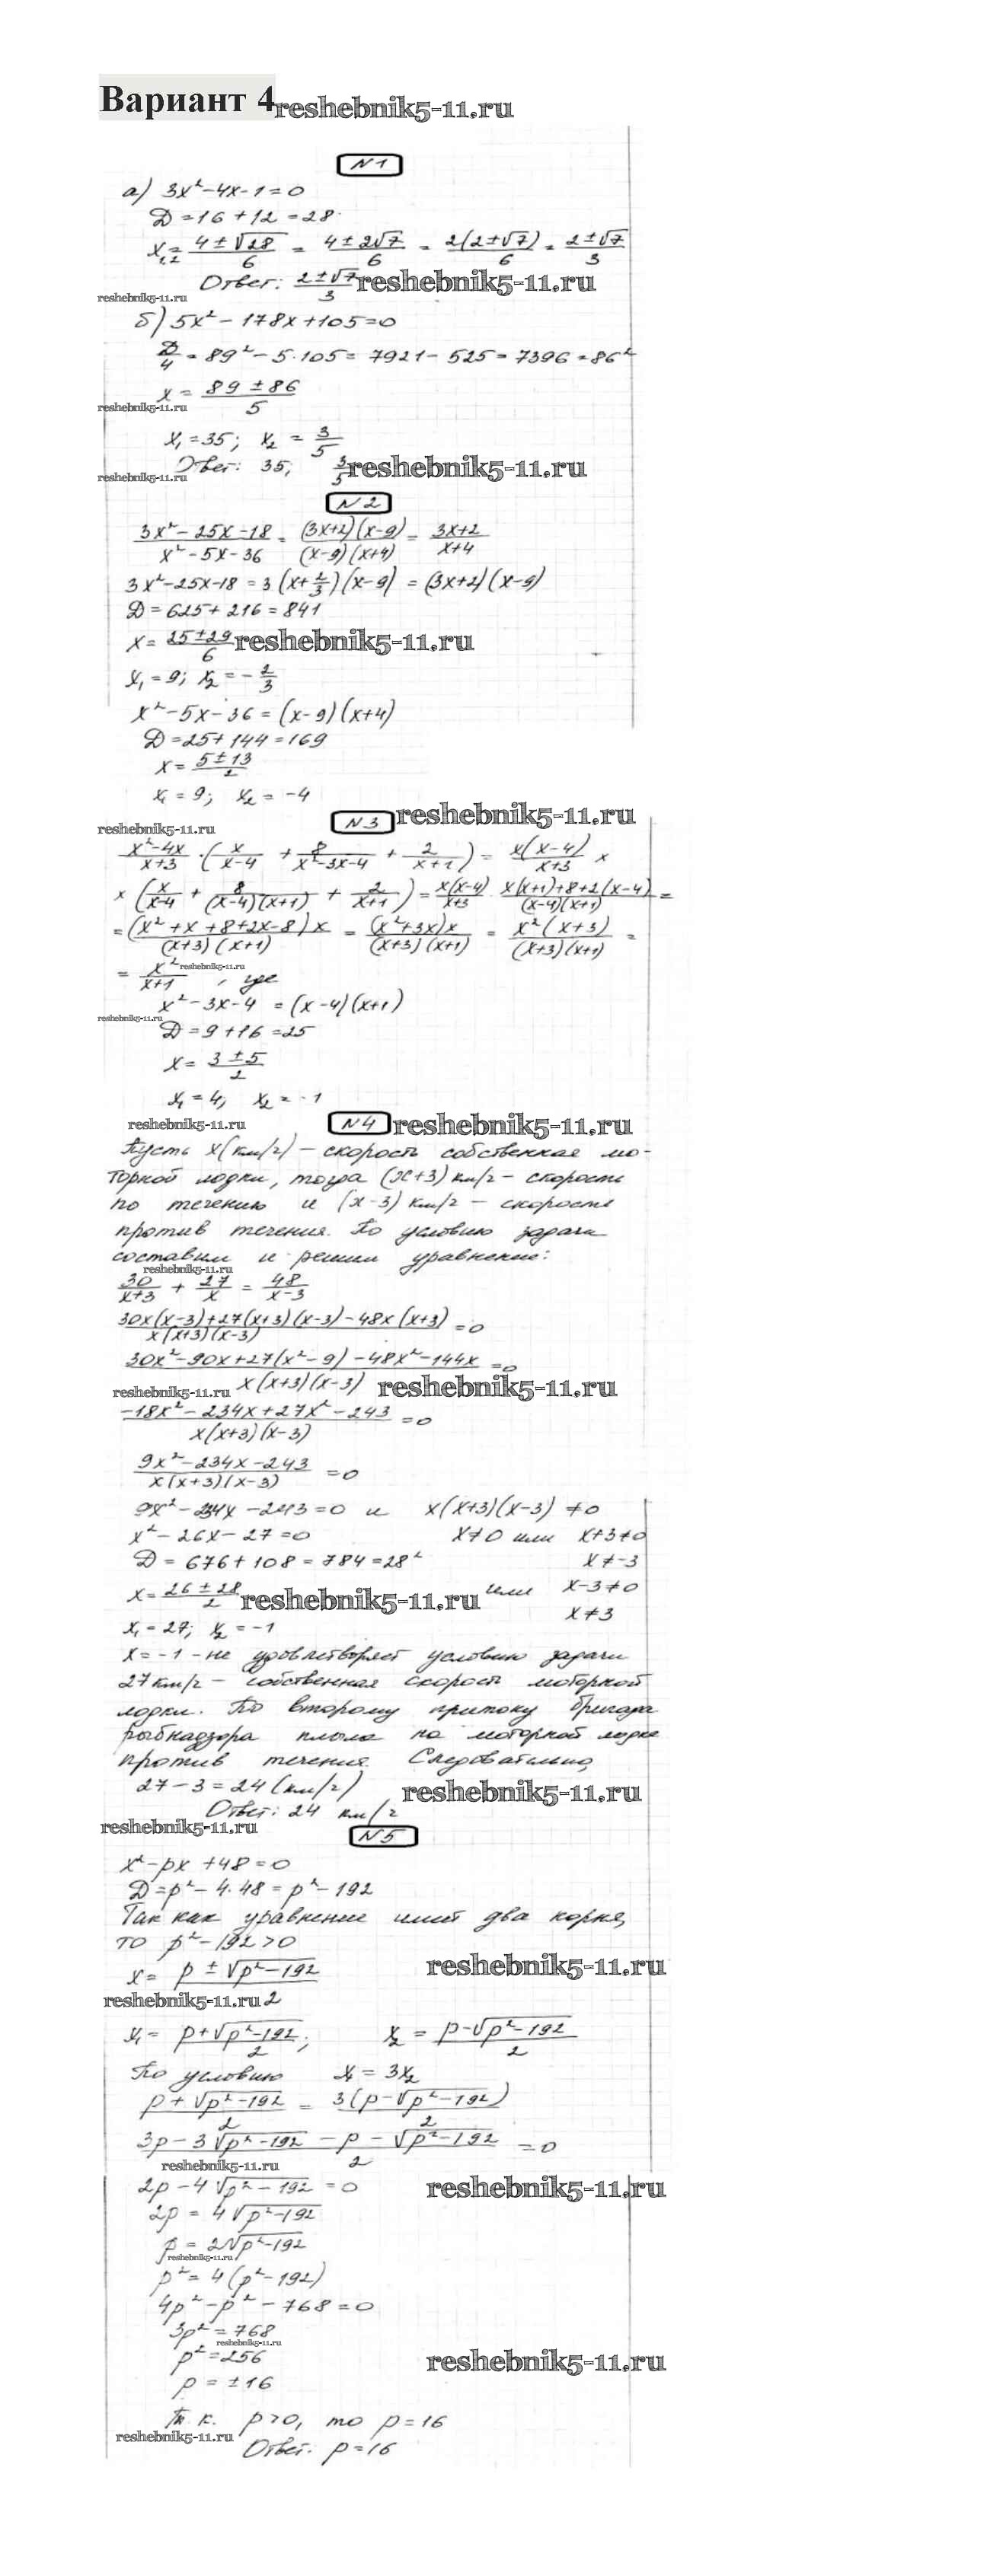 Вариант 4
reshebnik5-11.ru
N1
а) 3x²-4x-1=0
D=16+12=28
x₁,₂=(4±√28)/6 = (4±2√7)/6 = 2(2±√7)/6 = (2±√7)/3
Ответ: (2±√7)/3 reshebnik5-11.ru
reshebnik5-11.ru
б) 5x²-178x+105=0
D/4=89²-5·105=7921-525=7396=86²
x=(89±86)/5
reshebnik5-11.ru
x₁=35; x₂=3/5
Ответ: 35; 3/5 reshebnik5-11.ru
reshebnik5-11.ru
N2
(3x²-25x-18)/(x²-5x-36) = (3x+2)(x-9)/(x-9)(x+4) = (3x+2)/(x+4)
3x²-25x-18=3(x+2/3)(x-9)=(3x+2)(x-9)
D=625+216=841
x=(25±29)/6 reshebnik5-11.ru
x₁=9; x₂=-2/3
x²-5x-36=(x-9)(x+4)
D=25+144=169
x=(5±13)/2
x₁=9; x₂=-4
reshebnik5-11.ru
N3 reshebnik5-11.ru
(x²-4x)/(x+3)·(x/(x-4)+8/(x²-3x-4)+2/(x+1))=x(x-4)/(x+3) ×
×(x/(x-4)+8/(x-4)(x+1)+2/(x+1))=x(x-4)/(x+3) · (x(x+1)+8+2(x-4))/(x-4)(x+1)=
=(x²+x+8+2x-8)x/(x+3)(x+1)=(x²+3x)x/(x+3)(x+1)=x²(x+3)/(x+3)(x+1)=
=x²/(x+1), где
reshebnik5-11.ru
x²-3x-4=(x-4)(x+1)
reshebnik5-11.ru
D=9+16=25
x=(3±5)/2
x₁=4; x₂=-1
reshebnik5-11.ru N4 reshebnik5-11.ru
Пусть x(км/г) - скорость собственная мо-
торной лодки, тогда (x+3) км/г - скорость
по течению и (x-3) км/г - скорость
против течения. По условию задачи
составим и решим уравнение:
reshebnik5-11.ru
30/(x+3)+27/x=48/(x-3)
(30x(x-3)+27(x+3)(x-3)-48x(x+3))/x(x+3)(x-3)=0
(30x²-90x+27(x²-9)-48x²-144x)/x(x+3)(x-3)=0
reshebnik5-11.ru reshebnik5-11.ru
(-18x²-234x+27x²-243)/x(x+3)(x-3)=0
(9x²-234x-243)/x(x+3)(x-3)=0
9x²-234x-243=0 и x(x+3)(x-3)≠0
x²-26x-27=0 x≠0 или x+3≠0
D=676+108=784=28² x≠-3
x=(26±28)/2 reshebnik5-11.ru или x-3≠0
x₁=27; x₂=-1 x≠3
x=-1-не удовлетворяет условию задачи
27км/г - собственная скорость моторной
лодки. По второму притоку бригада
рыбнадзора плыла на моторной лодке
против течения. Следовательно,
27-3=24(км/г) reshebnik5-11.ru
Ответ: 24 км/г
reshebnik5-11.ru
N5
x²-px+48=0
D=p²-4·48=p²-192
Так как уравнение имеет два корня,
то p²-192>0
x=(p±√(p²-192))/2 reshebnik5-11.ru
reshebnik5-11.ru
x₁=(p+√(p²-192))/2; x₂=(p-√(p²-192))/2
По условию x₁=3x₂
(p+√(p²-192))/2=3(p-√(p²-192))/2
(3p-3√(p²-192)-p-√(p²-192))/2=0
reshebnik5-11.ru
2p-4√(p²-192)=0 reshebnik5-11.ru
2p=4√(p²-192)
p=2√(p²-192)
reshebnik5-11.ru
p²=4(p²-192)
4p²-p²-768=0
3p²=768
reshebnik5-11.ru
p²=256 reshebnik5-11.ru
p=±16
Т.к. p>0, то p=16
reshebnik5-11.ru
Ответ: p=16